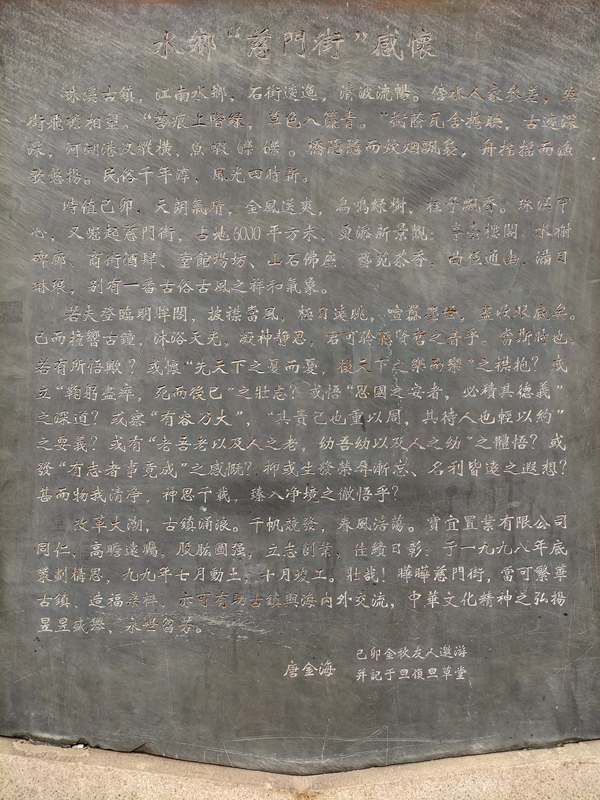 水鄉“慈門街”感懷
珠溪古鎮，江南水鄉，石街逶迤，清波流暢。傍水人家參差，沿
街飛簷相望。“苔痕上階綠，草色入簾青。”樹蔭瓦舍掩映，古道深
深，河湖港汊縱橫，魚蝦爍爍。橋隱隱而炊烟飄裊，舟搖搖而漁
歌悠揚。民俗千年淳，風光四時新。
時值己卯，天朗氣晴，金風送爽，鳥鳴綠樹，桂子飄香。珠溪中
心，又崛起慈門街，占地6000平方米，更添新景觀：亭臺樓閣、水榭
碑廊、商街酒肆、堂館場坊、山石佛龕、藝苑茶香、曲徑通幽，滿目
琳琅，别有一番古俗古風之祥和氣象。
若夫登臨明牌閣，披襟當風，極目遠眺，喧囂塵世，盡收眼底矣。
已而撞響古鐘，沐浴天光，凝神静思，君可聆聽聖哲之音乎。當斯時也，
若有所悟歟？或懷“先天下之憂而憂，後天下之樂而樂”之襟抱？或
立“鞠躬盡瘁，死而後已”之壯志？或悟“思國之安者，必積其德義”
之深道？或察“有容乃大”，“其責己也重以周，其待人也輕以約”
之要義？或有“老吾老以及人之老，幼吾幼以及人之幼”之體悟？或
發“有志者事竟成”之感慨？抑或生發榮辱漸忘、名利皆遠之遐想？
甚而物我清淨，神思千載，臻入净境之徹悟乎？
改革大潮，古鎮涌浪。千帆競發，春風浩蕩。寶宜置業有限公司
同仁，高瞻遠矚，股肱圖强，立志創業，佳績日彰，于一九九八年底
策劃構思，九九年七月動土，十月竣工。壯哉！曄曄慈門街，當可繁華
古鎮，造福桑梓，亦可有助古鎮與海内外交流，中華文化精神之弘揚
昱昱盛舉，永世留芳。
己卯金秋友人邀游
唐金海
并記于旦復旦草堂